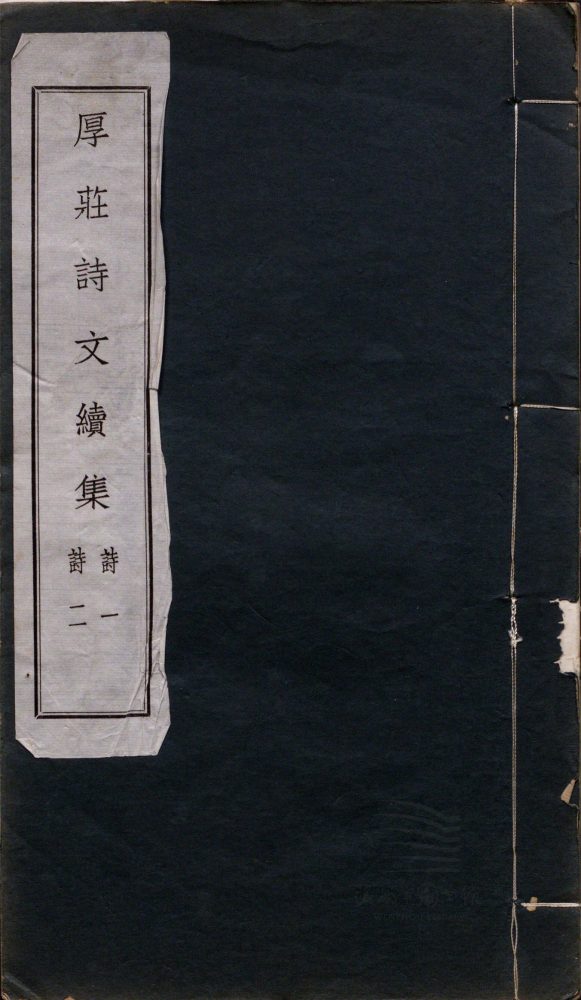 厚莊詩文續集
詩一
詩二